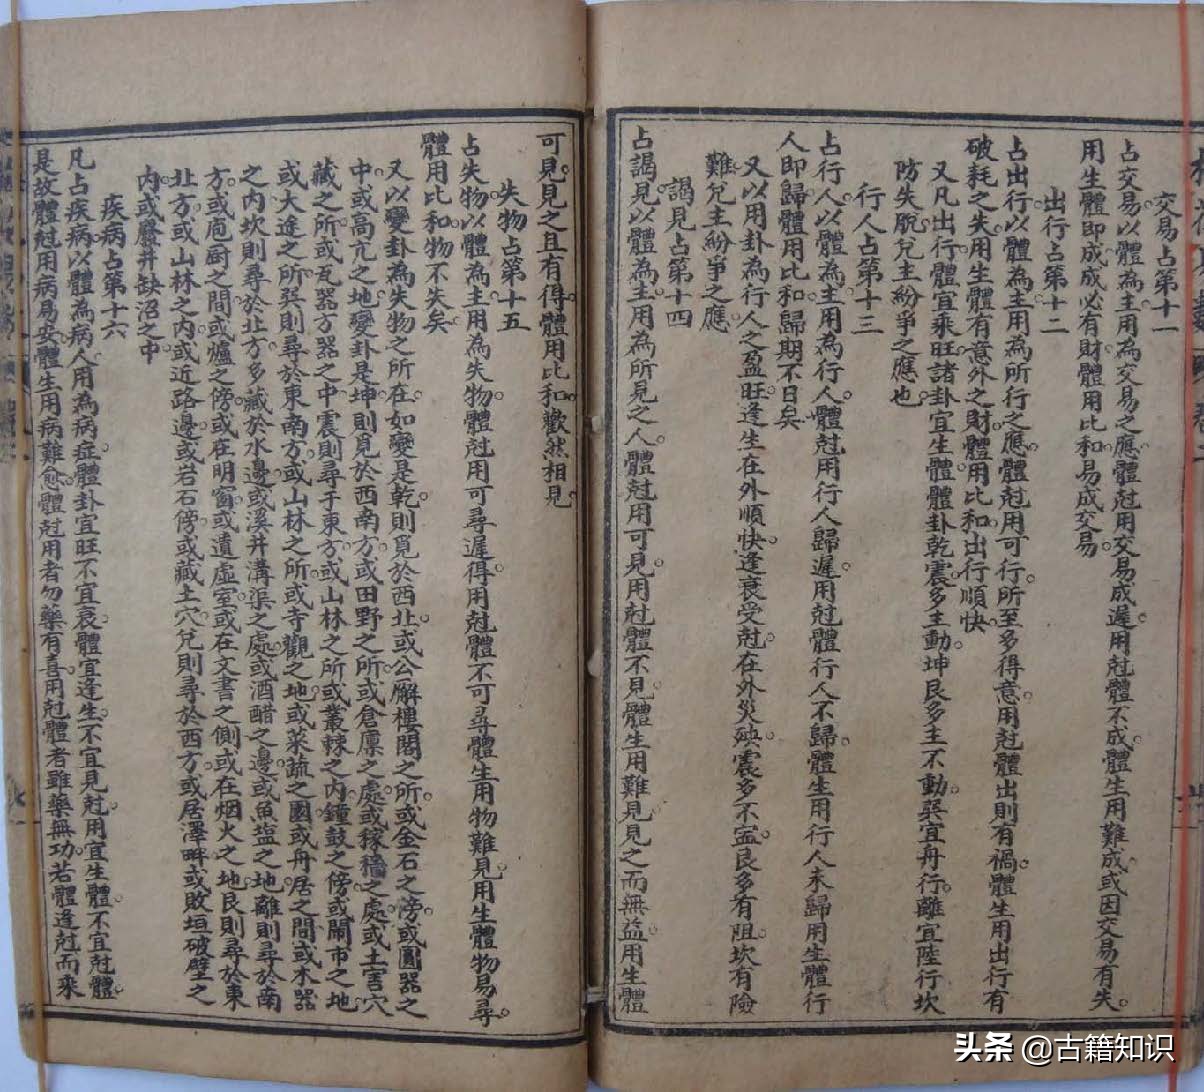 交易占第十一
占交易以體為主用為交易之應體尅用交易成遲用尅體不成體生用難成或因交易有失
用生體即成成必有財體用比和易成交易
出行占第十二
占出行以體為主用為所行之應體尅用可行所至多得意用尅體出則有禍體生用出行有
破耗之失用生體有意外之財體用比和出行順快
又凡出行體宜乘旺諸卦宜生體體卦乾震多主動坤艮多主不動巽宜舟行離宜陸行坎
防失脫兌主紛爭之應也
行人占第十三
占行人以體為主用為行人體尅用行人歸遲用尅體行人不歸體生用行人未歸用生體行
人即歸體用比和歸期不日矣
又以用卦為行人之盈旺逢生在外順快逢衰受尅在外災殃震多不寍艮多有阻坎有險
難兌主紛爭之應
謁見占第十四
占謁見以體為主用為所見之人體尅用可見用尅體不見體生用難見見之而無益用生體
可見見之且有得體用比和歡然相見
失物占第十五
占失物以體為主用為失物體尅用可尋遲得用尅體不可尋體生用物難見用生體物易尋
體用比和物不失矣
又以變卦為失物之所在如變是乾則覓於西北或公廨樓閣之所或金石之傍或圓器之
中或高亢之地變卦是坤則覓於西南方或田野之所或倉廩之處或稼穡之處或土窖穴
藏之所或瓦器方器之中震則尋于東方或山林之所或叢棘之內鐘鼓之傍或鬧市之地
或大途之所巽則尋於東南方或山林之所或寺觀之地或菜蔬之園或舟居之間或木器
之內坎則尋於北方多藏於水邊或溪井溝渠之處或酒醋之邊或魚塩之地離則尋於南
方或庖厨之間或爐之傍或在明窗或遺虛室或在文書之側或在烟火之地艮則尋於東
北方或山林之內或近路邊或岩石傍或藏土穴兌則尋於西方或居澤畔或敗垣破壁之
內或廢井缺沼之中
疾病占第十六
凡占疾病以體為病人用為病症體卦宜旺不宜衰體宜逢生不宜見尅用宜生體不宜尅體
是故體尅用病易安體生用病難愈體尅用者勿藥有喜用尅體者雖藥無功若體逢尅而乘
头条 @古籍知识